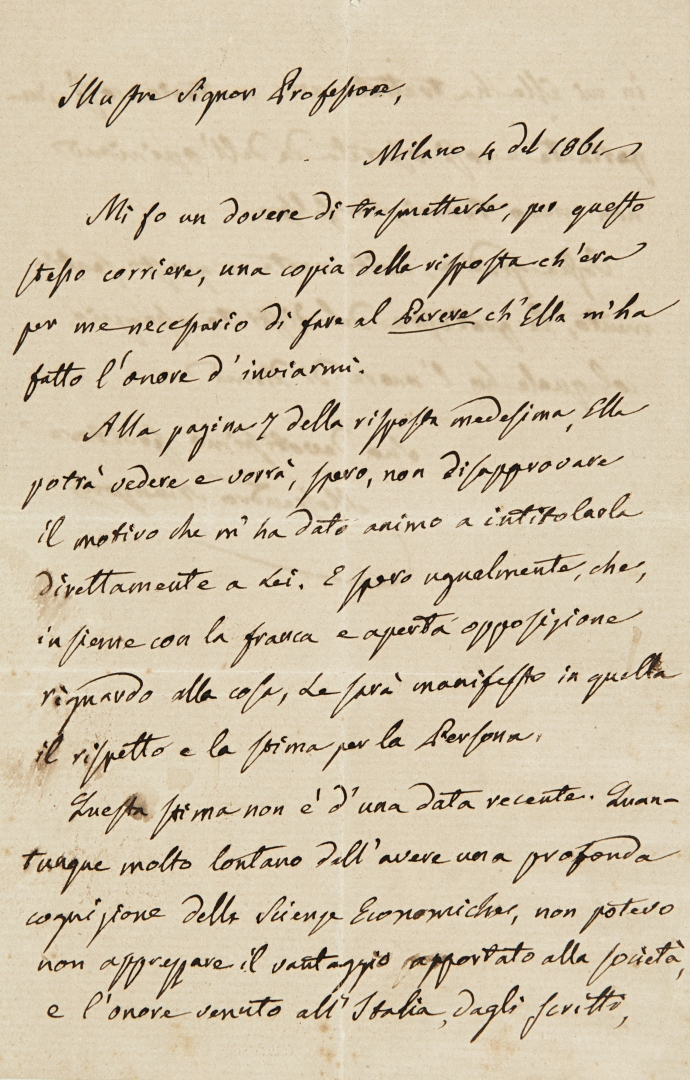 Illustre Signor Professore,
Milano 4 del 1861
Mi fo un dovere di trasmetterle, per questo
stesso corriere, una copia della risposta ch'era
per me necessario di fare al Parere ch'Ella m'ha
fatto l'onore d'inviarmi.
Alla pagina 7 della risposta medesima, Ella
potrà vedere e vorrà, spero, non disapprovare
il motivo che m'ha dato animo a intitolarla
direttamente a Lei. E spero ugualmente, che,
insieme con la franca e aperta opposizione
riguardo alla cosa, Le sarà manifesto in quella
il rispetto e la stima per la Persona.
Questa stima non è d'una data recente. Quan-
tunque molto lontano dall'avere una profonda
cognizione delle Scienze Economiche, non potevo
non apprezzare il vantaggio apportato alla società,
e l'onore venuto all'Italia, dagli scritti,